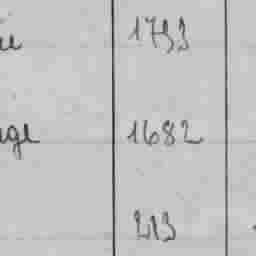 1793
age 1682
213